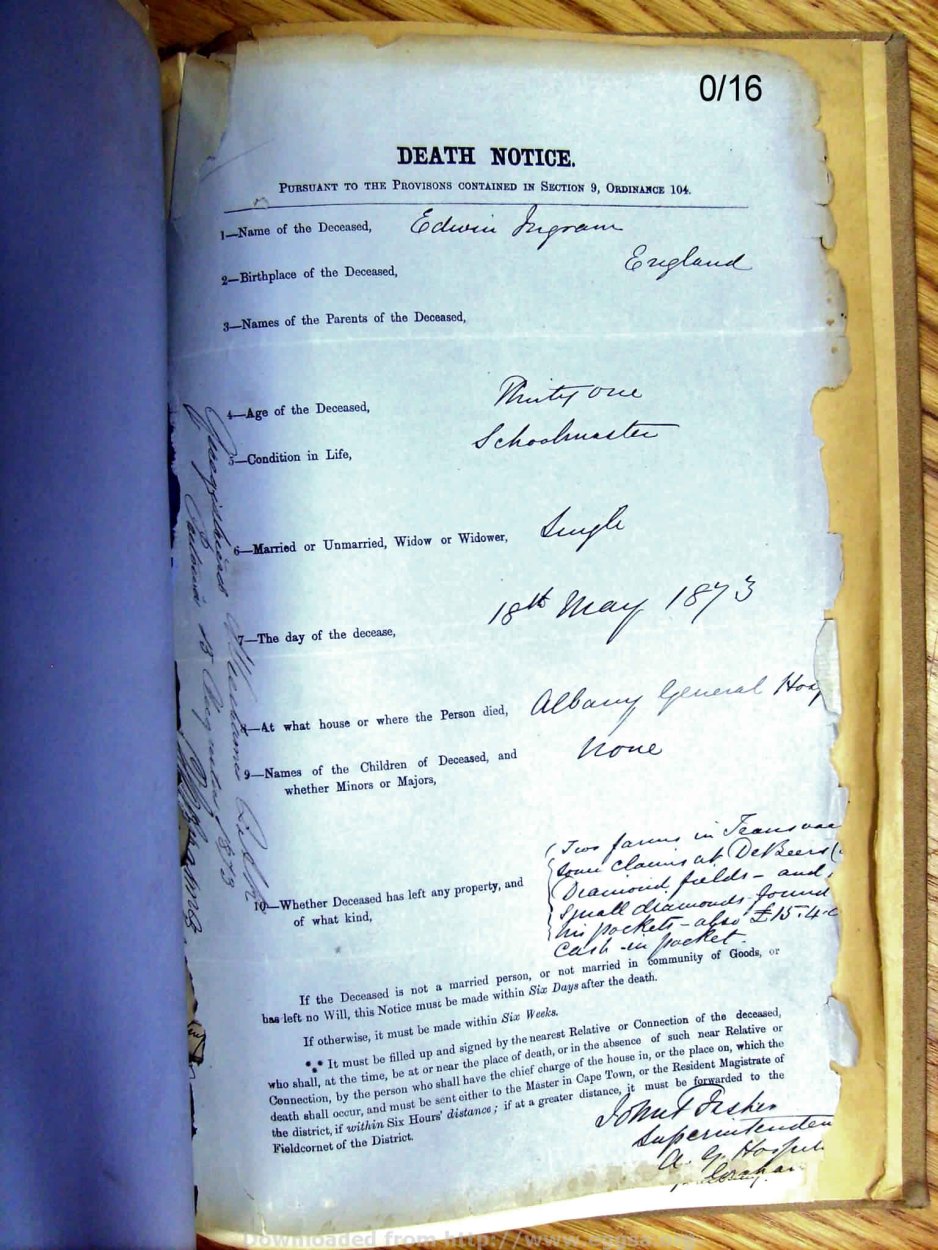 0/16
DEATH NOTICE.
PURSUANT TO THE PROVISONS CONTAINED IN SECTION 9, ORDINANCE 104.
1—Name of the Deceased, Edwin Ingram
England
2—Birthplace of the Deceased,
3—Names of the Parents of the Deceased,
Thirty one
4—Age of the Deceased,
Schoolmaster
5—Condition in Life,
6—Married or Unmarried, Widow or Widower, Single
18th May 1873
7—The day of the decease,
8—At what house or where the Person died, Albany General Hosp
9—Names of the Children of Deceased, and None
whether Minors or Majors,
Two farms in Transvaa
some claims at DeBeers
Diamond fields - and
10—Whether Deceased has left any property, and small diamonds found
of what kind, his pockets - also £15.4
cash in pocket.
If the Deceased is not a married person, or not married in community of Goods, or
has left no Will, this Notice must be made within Six Days after the death.
If otherwise, it must be made within Six Weeks.
It must be filled up and signed by the nearest Relative or Connection of the deceased,
who shall, at the time, be at or near the place of death, or in the absence of such near Relative or
Connection, by the person who shall have the chief charge of the house in, or the place on, which the
death shall occur, and must be sent either to the Master in Cape Town, or the Resident Magistrate of
the district, if within Six Hours' distance; if at a greater distance, it must be forwarded to the
Fieldcornet of the District.
John T Fisher
Superintenden
A. G. Hospit
Downloaded from http://www.eggsa.org